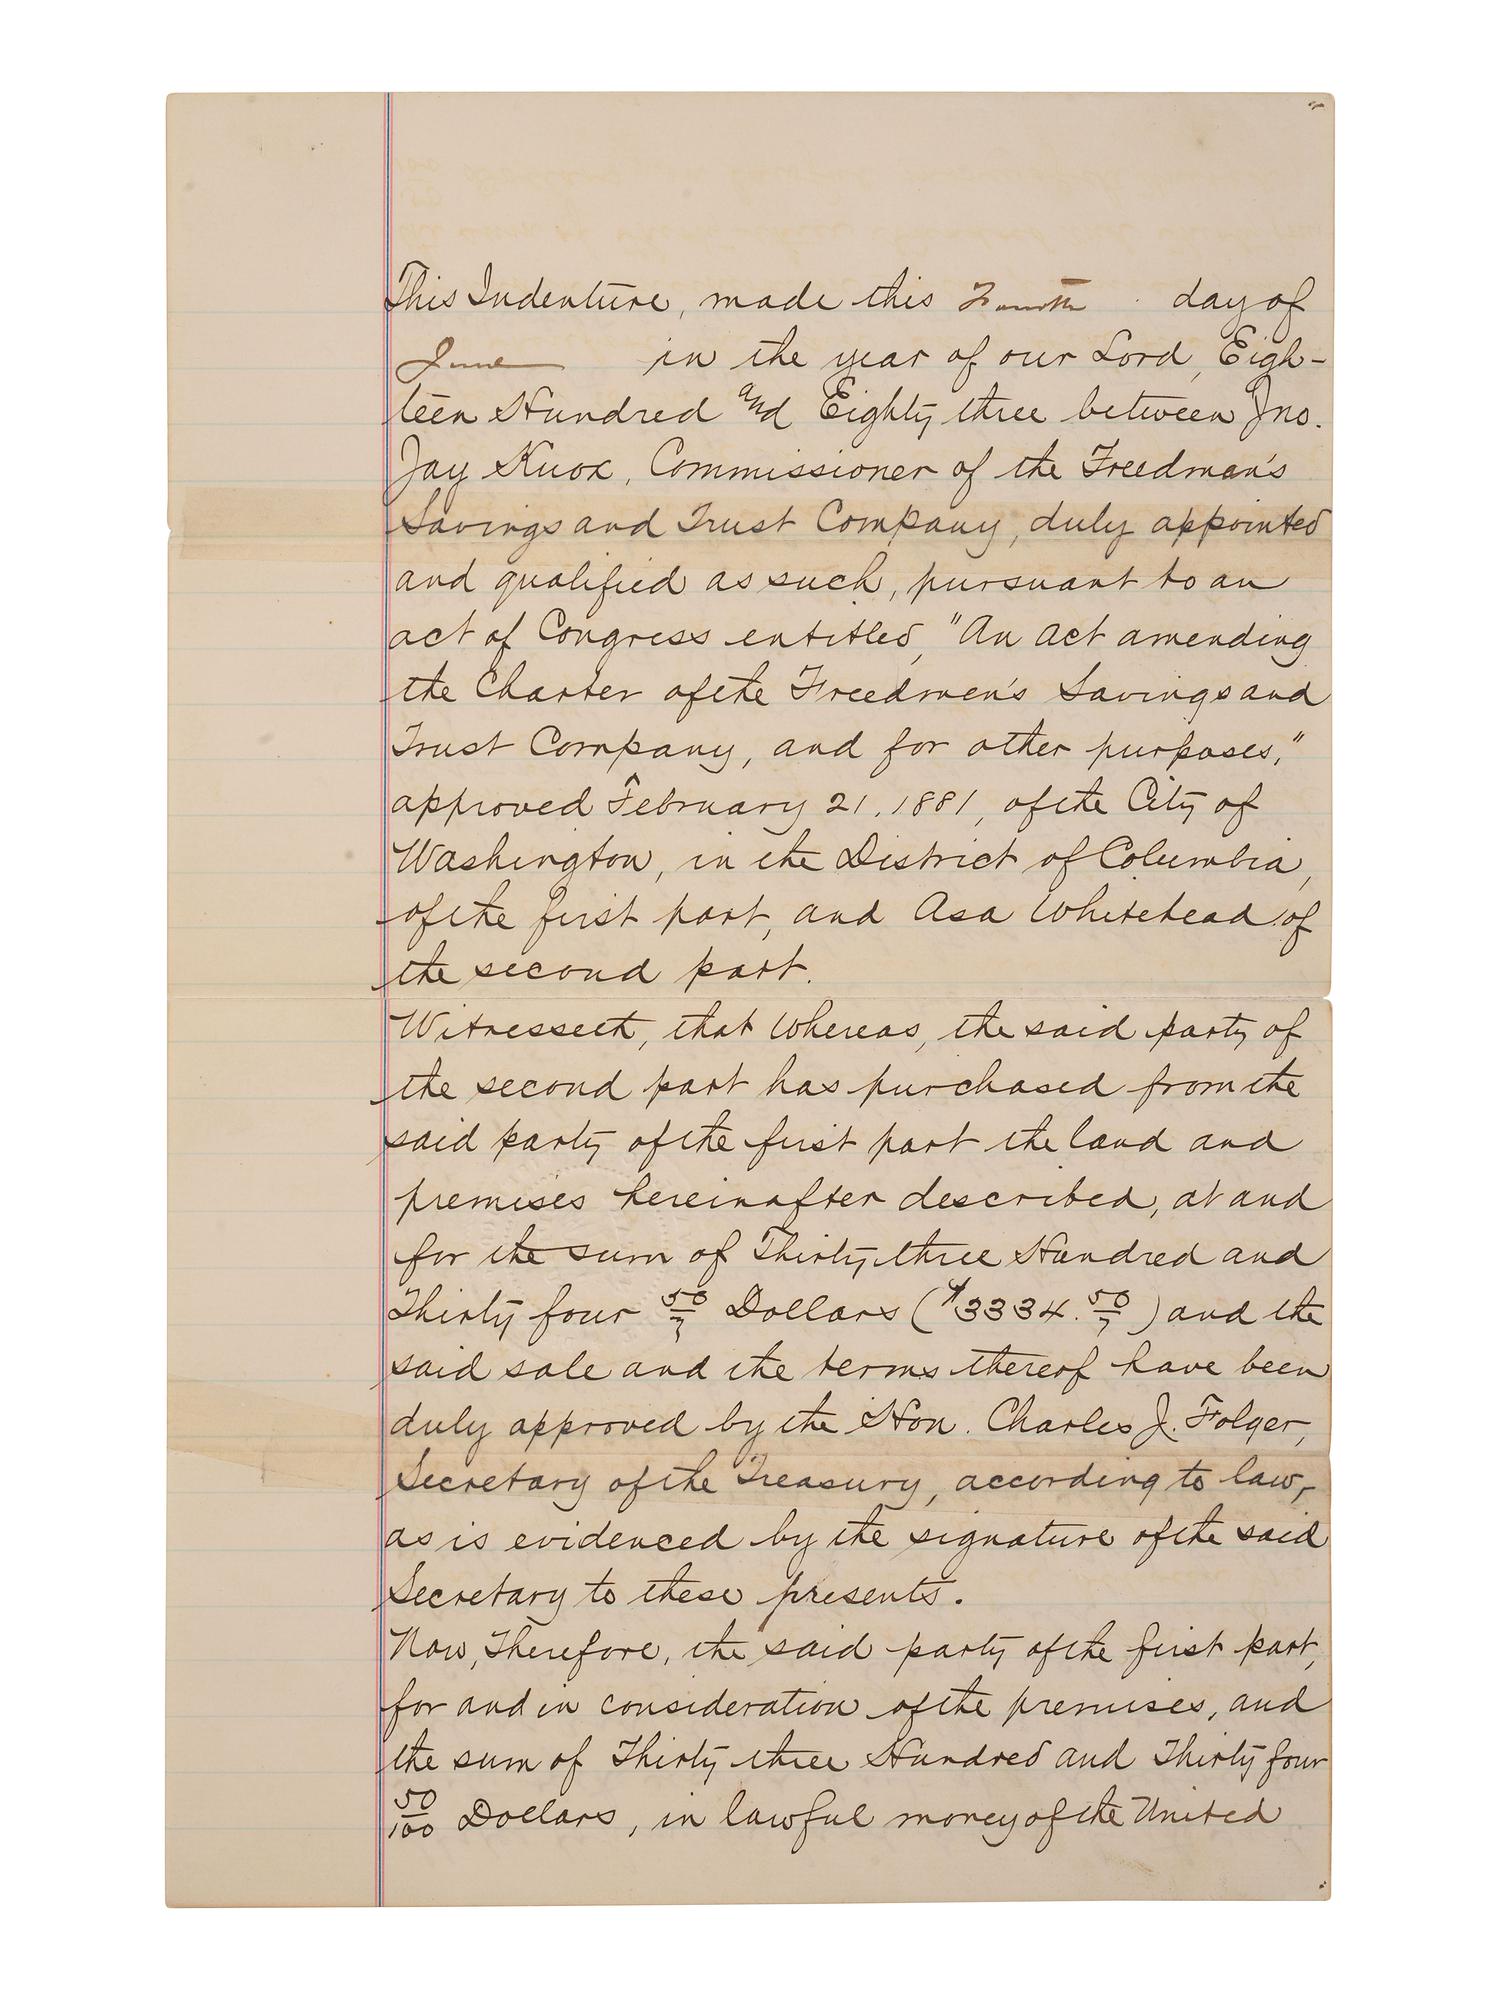 This Indenture, made this Fourth day of
June in the year of our Lord, Eigh-
teen Hundred and Eighty three between Jno.
Jay Knox, Commissioner of the Freedman's
Savings and Trust Company, duly appointed
and qualified as such, pursuant to an
act of Congress entitled, "An Act amending
the Charter of the Freedmen's Savings and
Trust Company, and for other purposes,"
approved February 21, 1881, of the City of
Washington, in the District of Columbia,
of the first part, and Asa Whitehead of
the second part.
Witnesseth, that whereas, the said party of
the second part has purchased from the
said party of the first part the land and
premises hereinafter described, at and
for the sum of Thirty-three Hundred and
Thirty four 50/ Dollars ($3334.50/ ) and the
said sale and the terms thereof have been
duly approved by the Hon. Charles J. Folger,
Secretary of the Treasury, according to law,
as is evidenced by the signature of the said
Secretary to these presents.
Now, Therefore, the said party of the first part,
for and in consideration of the premises, and
the sum of Thirty three Hundred and Thirty four
50/100 Dollars, in lawful money of the United